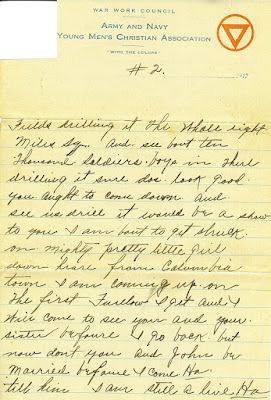 WAR WORK COUNCIL
ARMY AND NAVY
YOUNG MEN'S CHRISTIAN ASSOCIATION
"WITH THE COLORS"
# 2. 1917
Fields drilling it the whall eight
Miles Sq. And. see bout ten
Thousand Soldiers. boys in thell
drilling it sure dos. look good.
you aught to come down and
see us drill it would be a show
to you I am bout to get struck
on mighty pretty little girl
down hare from Columbia
town I am coming up on
the first Furlow I get and I
will come to see you and your
sister befoure I go back. but
now don't you and John be
Married befoure I come Ha
tell him I am still a live Ha